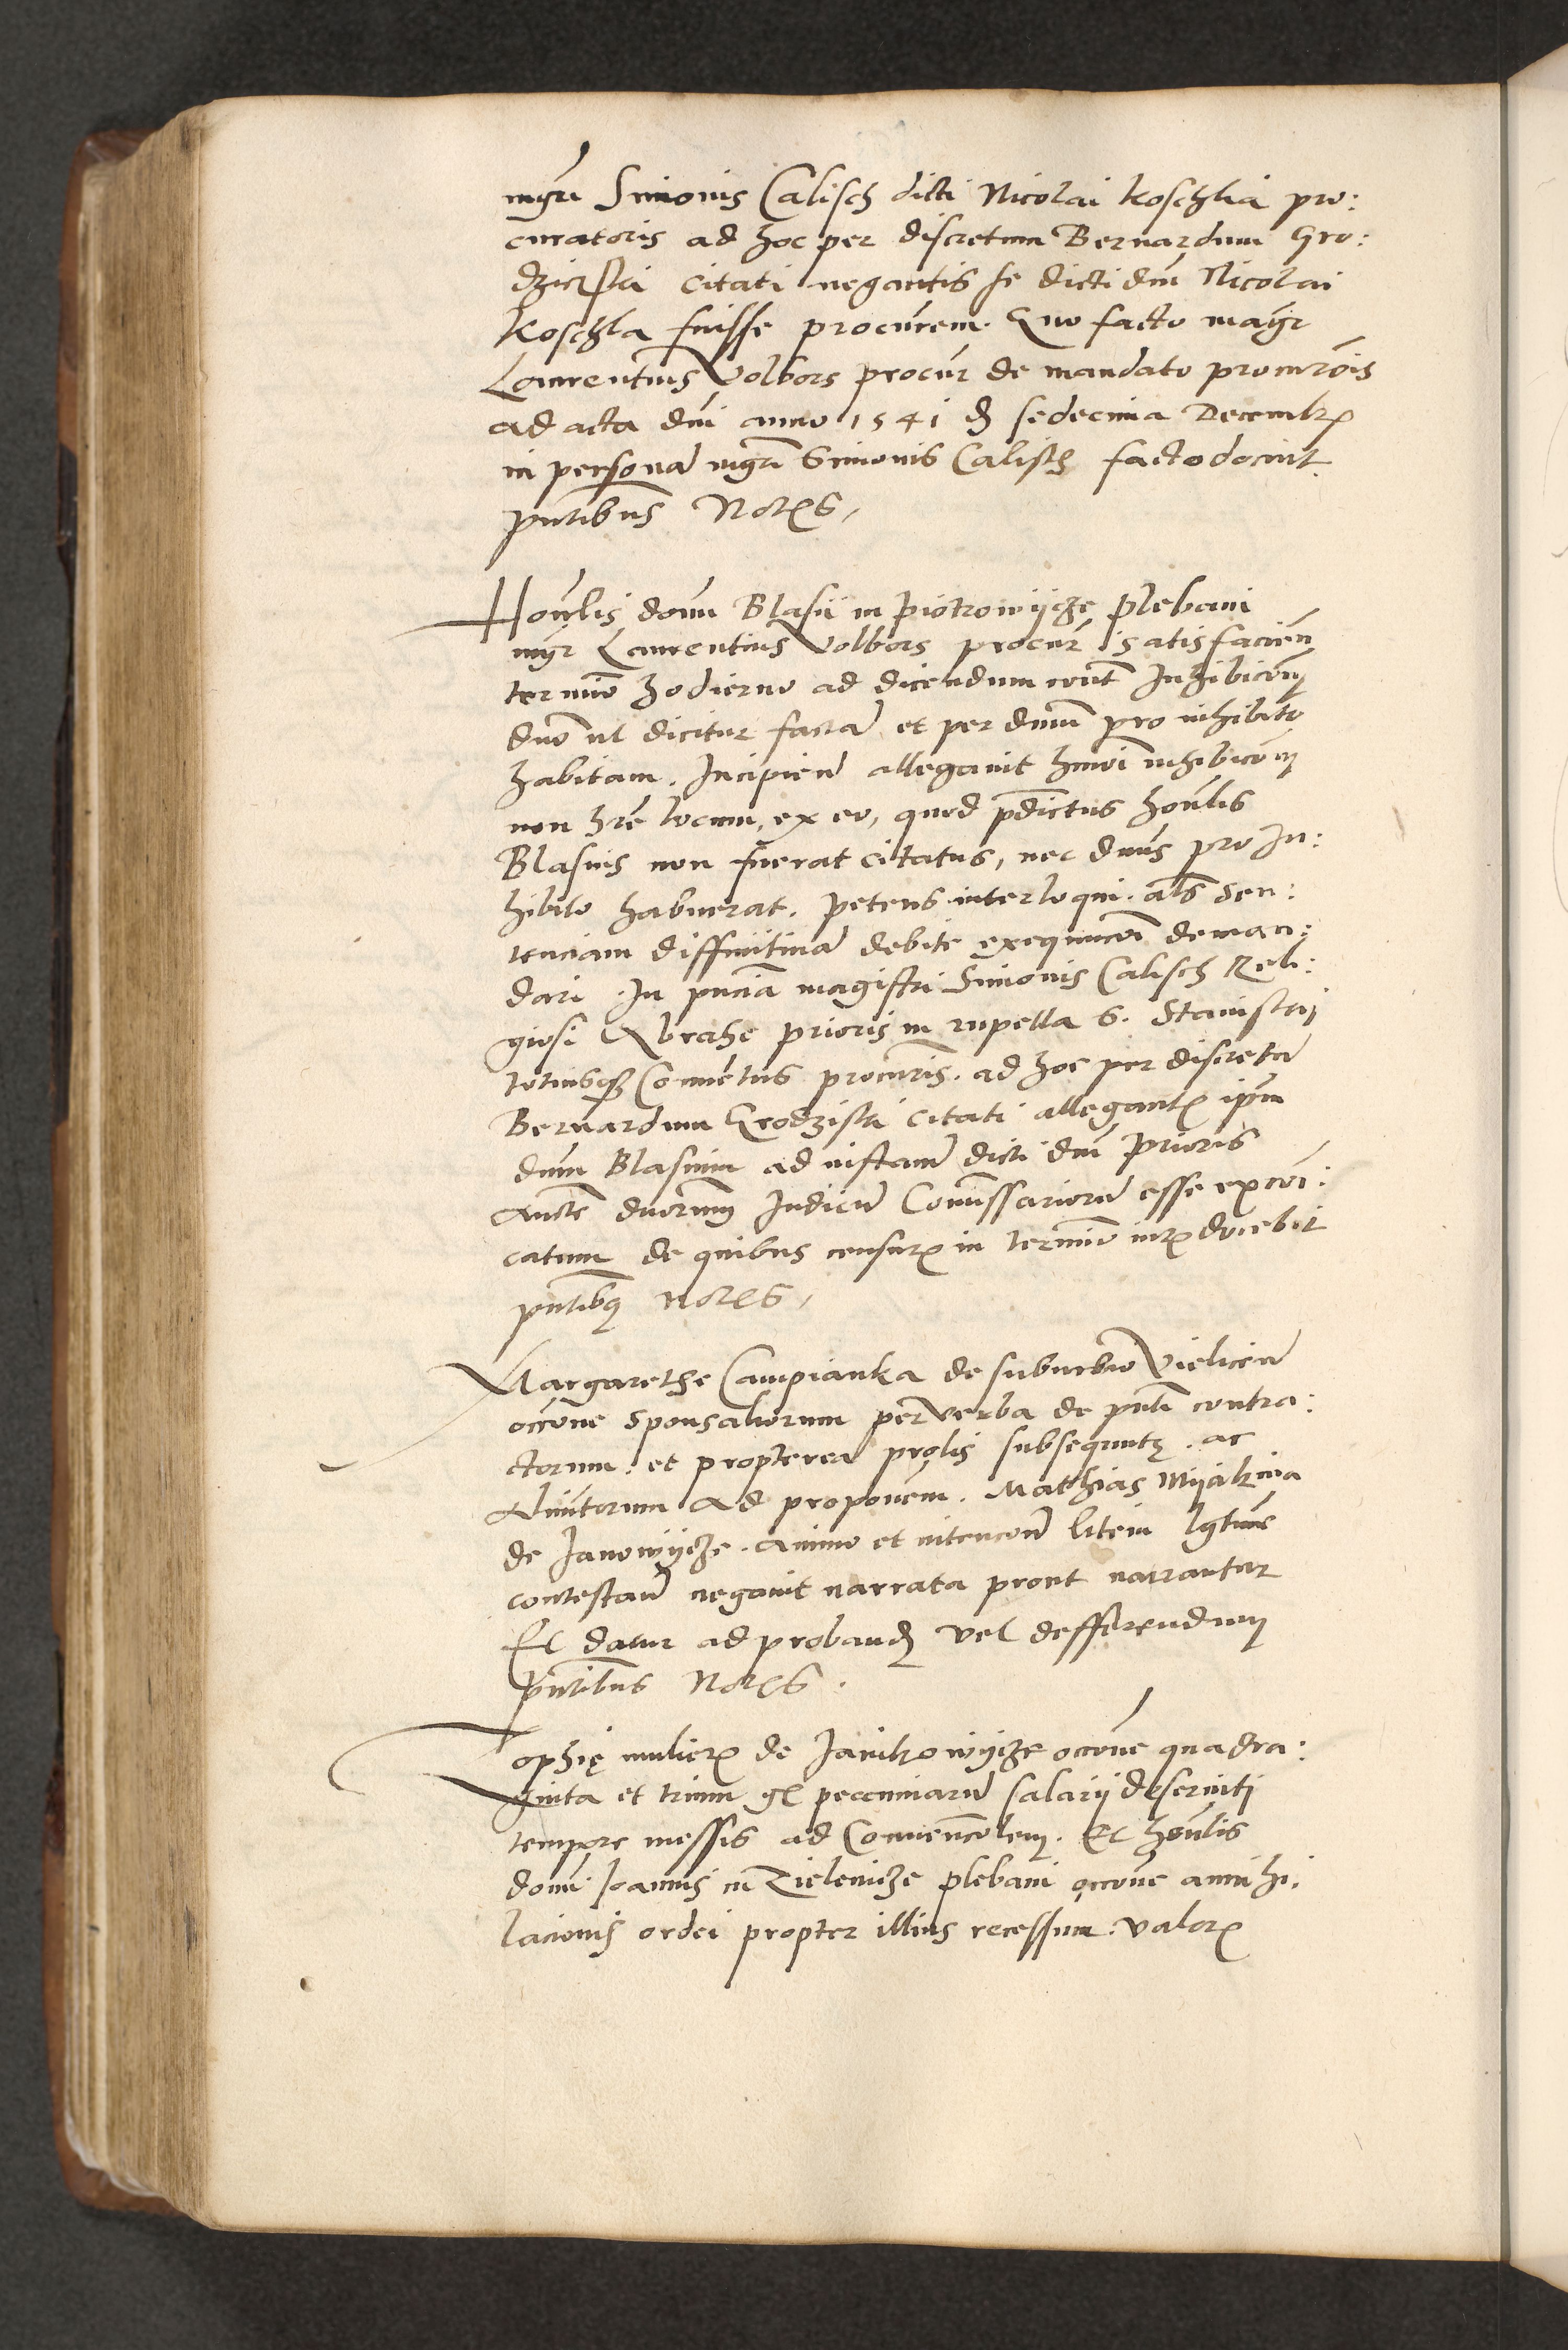 mgri Simonis Calisch dicti Nicolai Koschla pro:
curatoris ad hoc per discretum Bernardum Gro:
dziczski citati negantis se dicti dni Nicolai
Koschla fuisse procurem. Quo facto magr
Laurentius Volbors procur de mandato procurōis
ad acta dni anno 1541 d sedecima Decembr
in persona mgri Simonis Calisch facto docuit
pntibus Notrs,
Honlis domi Blasii in Piotrowijcze plebani
mgr Laurentius Volbors procur satisfacien
termio hodierno ad dicendum cont Inhibicōnem
dno ut dicitur factā et per dnum pro inhibito
habitam. Incipien allegavit hmoi inhibicōnem
non hrē locum, ex eo, quod pdictus honlis
Blasius non fuerat citatus, nec dnus pro In:
hibito habuerat. petens interloqui. als sen:
tenciam diffinitivā debite exequucōi deman:
dari. In pnciā magistri Simonis Calisch Reli:
giosi Abrahe prioris in rupella S. Stanislaj
totiusqz Conventus procuris. ad hoc per discretū
Bernardum Grodziski citati allegantis ipm
dnm Blasium ad instanciā dicti dni prioris
aucte duorum Judicū Comissariorū esse excōi:
catum de quibus censuris in termio iuris docebit
pntibus Notrs,
Margarethe Campianka de suburbio Vielicien
occōne sponsaliorum per verba de pnti contra:
ctorum. et propterea prolis subsequute. ac
Alimtorum ad proponem. Mathias Mijakina
de Janowijcze. animo et intencōne litem lgtime
contestan negavit narrata prout narrantur
Et datur ad proband vel defferendum
pntibus Notrs.
Zophię mulieris de Janikowijcze occōne quadra:
ginta et trium gr pecuniarū salarij deserviti
tempore messis ad Convencōlem. Et honlis
domi Joannis in Zielenicze plebani occōne anni hi.
lacionis ordei propter illius recessum. valoris